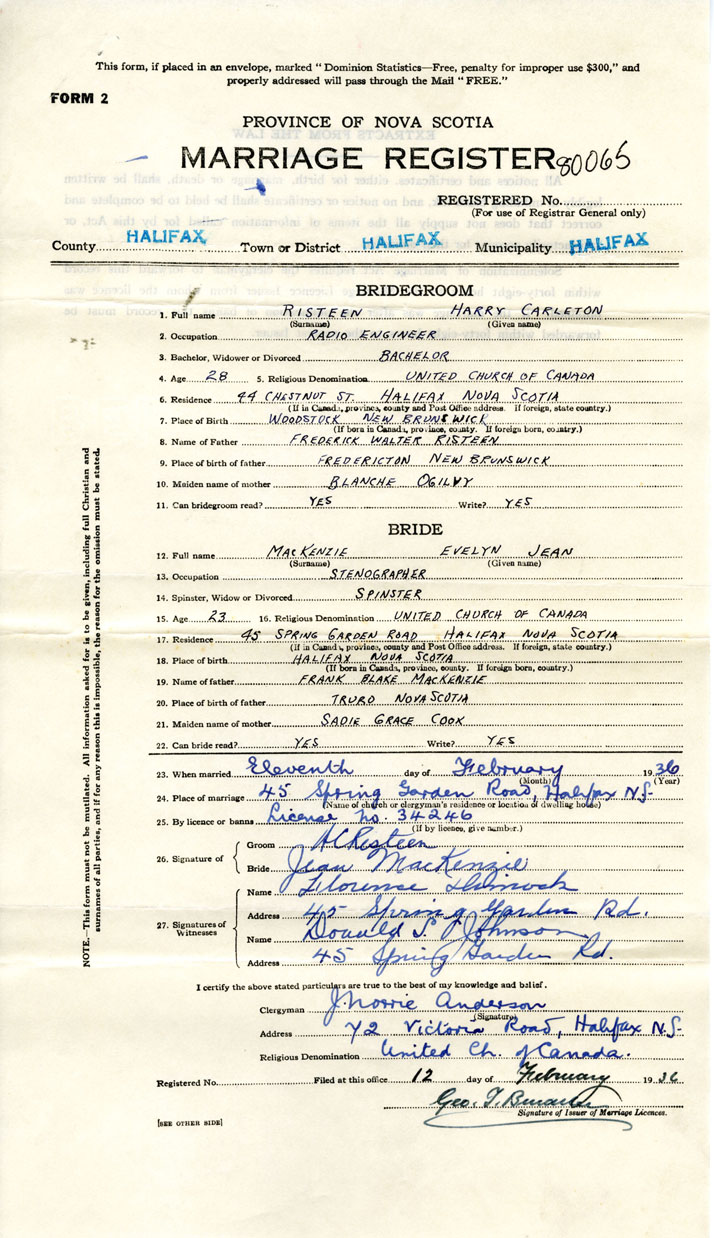 This form, if placed in an envelope, marked "Dominion Statistics—Free, penalty for improper use $300," and
properly addressed will pass through the Mail "FREE."
FORM 2
PROVINCE OF NOVA SCOTIA
MARRIAGE REGISTER 80065
REGISTERED No.
(For use of Registrar General only)
County HALIFAX Town or District HALIFAX Municipality HALIFAX
BRIDEGROOM
1. Full name RISTEEN HARRY CARLETON
(Surname) (Given name)
2. Occupation RADIO ENGINEER
3. Bachelor, Widower or Divorced BACHELOR
4. Age 28 5. Religious Denomination UNITED CHURCH OF CANADA
6. Residence 44 CHESTNUT ST. HALIFAX NOVA SCOTIA
(If in Canada, province, county and Post Office address. If foreign, state country.)
7. Place of Birth WOODSTOCK NEW BRUNSWICK
(If born in Canada, province, county. If foreign born, country.)
8. Name of Father FREDERICK WALTER RISTEEN
9. Place of birth of father FREDERICTON NEW BRUNSWICK
10. Maiden name of mother BLANCHE OGILVY
11. Can bridegroom read? YES Write? YES
BRIDE
12. Full name MACKENZIE EVELYN JEAN
(Surname) (Given name)
13. Occupation STENOGRAPHER
14. Spinster, Widow or Divorced SPINSTER
15. Age 23 16. Religious Denomination UNITED CHURCH OF CANADA
17. Residence 45 SPRING GARDEN ROAD HALIFAX NOVA SCOTIA
(If in Canada, province, county and Post Office address. If foreign, state country.)
18. Place of birth HALIFAX NOVA SCOTIA
(If born in Canada, province, county. If foreign born, country.)
19. Name of father FRANK BLAKE MACKENZIE
20. Place of birth of father TRURO NOVA SCOTIA
21. Maiden name of mother SADIE GRACE COOK
22. Can bride read? YES Write? YES
23. When married Eleventh day of February 1936
(Month) (Year)
24. Place of marriage 45 Spring Garden Road, Halifax N.S.
(Name of church or clergyman's residence or location of dwelling house)
25. By licence or banns License no. 34246
(If by licence, give number.)
26. Signature of
Groom HCRisteen
Bride Jean MacKenzie
27. Signatures of Witnesses
Name Florence Dimock
Address 45 Spring Garden Rd.
Name Donald S. Johnson
Address 45 Spring Garden Rd.
I certify the above stated particulars are true to the best of my knowledge and belief.
Clergyman J. Morrie Anderson
(Signature)
Address 72 Victoria Road, Halifax N.S.
Religious Denomination United Ch. of Canada.
Registered No. Filed at this office 12 day of February 1936
Geo. T.
Signature of Issuer of Marriage Licences.
[SEE OTHER SIDE]
NOTE.—This form must not be mutilated. All information asked for is to be given, including full Christian and
surnames of all parties, and if for any reason this is impossible, the reason for the omission must be stated.